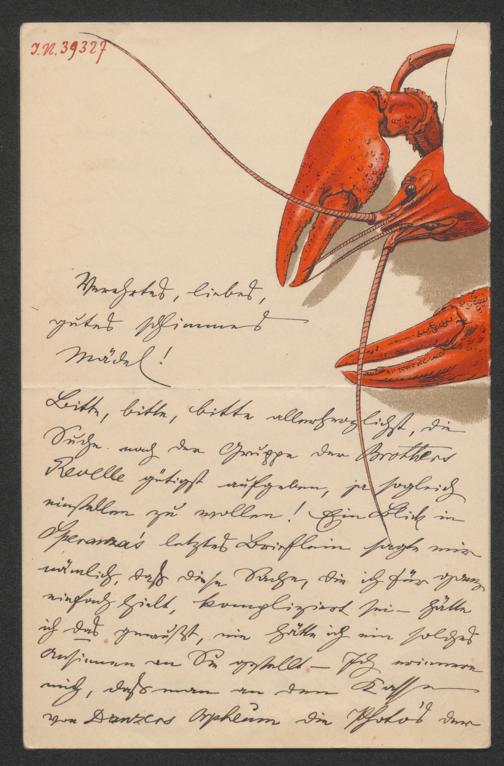 I.N. 39327
Verehrtes, liebes,
gutes schlimmes
Mädel!
Bitte, bitte, bitte allerherzlichst, die
Suche nach der Gruppe der Brothers
Revelle gütigst aufgeben, ja sogleich
einstellen zu wollen! Ein Blick in
Speranza's letztes Brieflein sagte mir
nämlich, daß diese Sache, die ich für ganz
einfach hielt, kompliziert sei – hätte
ich das gewußt, nie hätte ich ein solches
Ansinnen an Sie gestellt – Ich erinnere
mich, daß man an der Kasse
von Danzers Orpheum die Photo's der